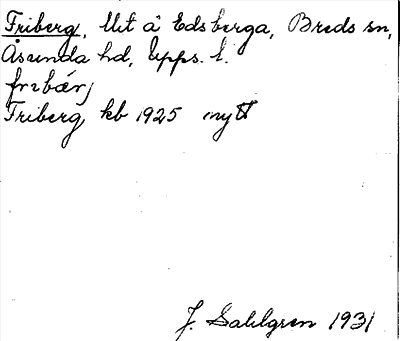 Friberg, llit å Edsberga, Breds sn,
Åsunda hd, Upps. l.
frıbærj
Friberg kb 1925 nytt
J. Sahlgren 1931